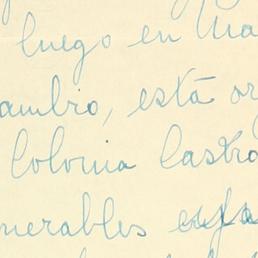 luego en
ambio, está or
Colonia Castro
nerables